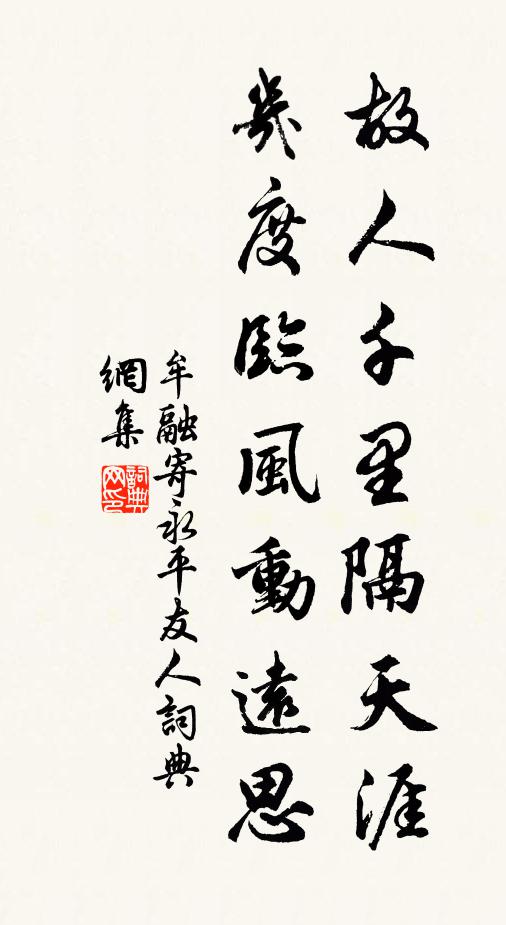 故人千里隔天涯
幾度臨風動遠思
牟融寄永平友人詞典
網集
詞典
網印